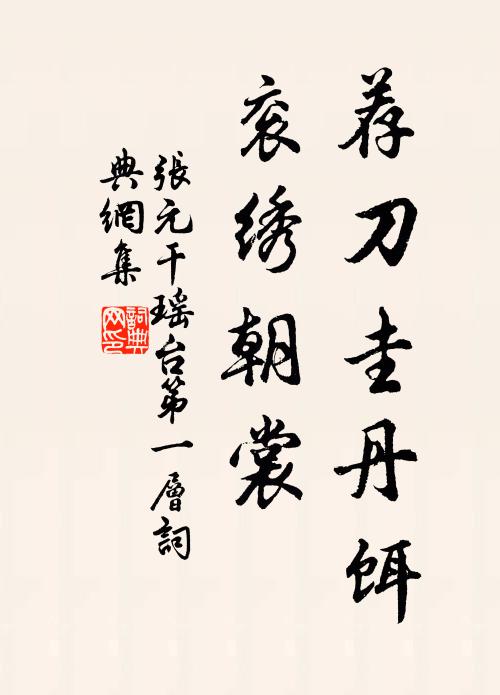 荐刀圭丹饵
衮绣朝裳
張元干瑶台第一層詞
典網集
詞典网印